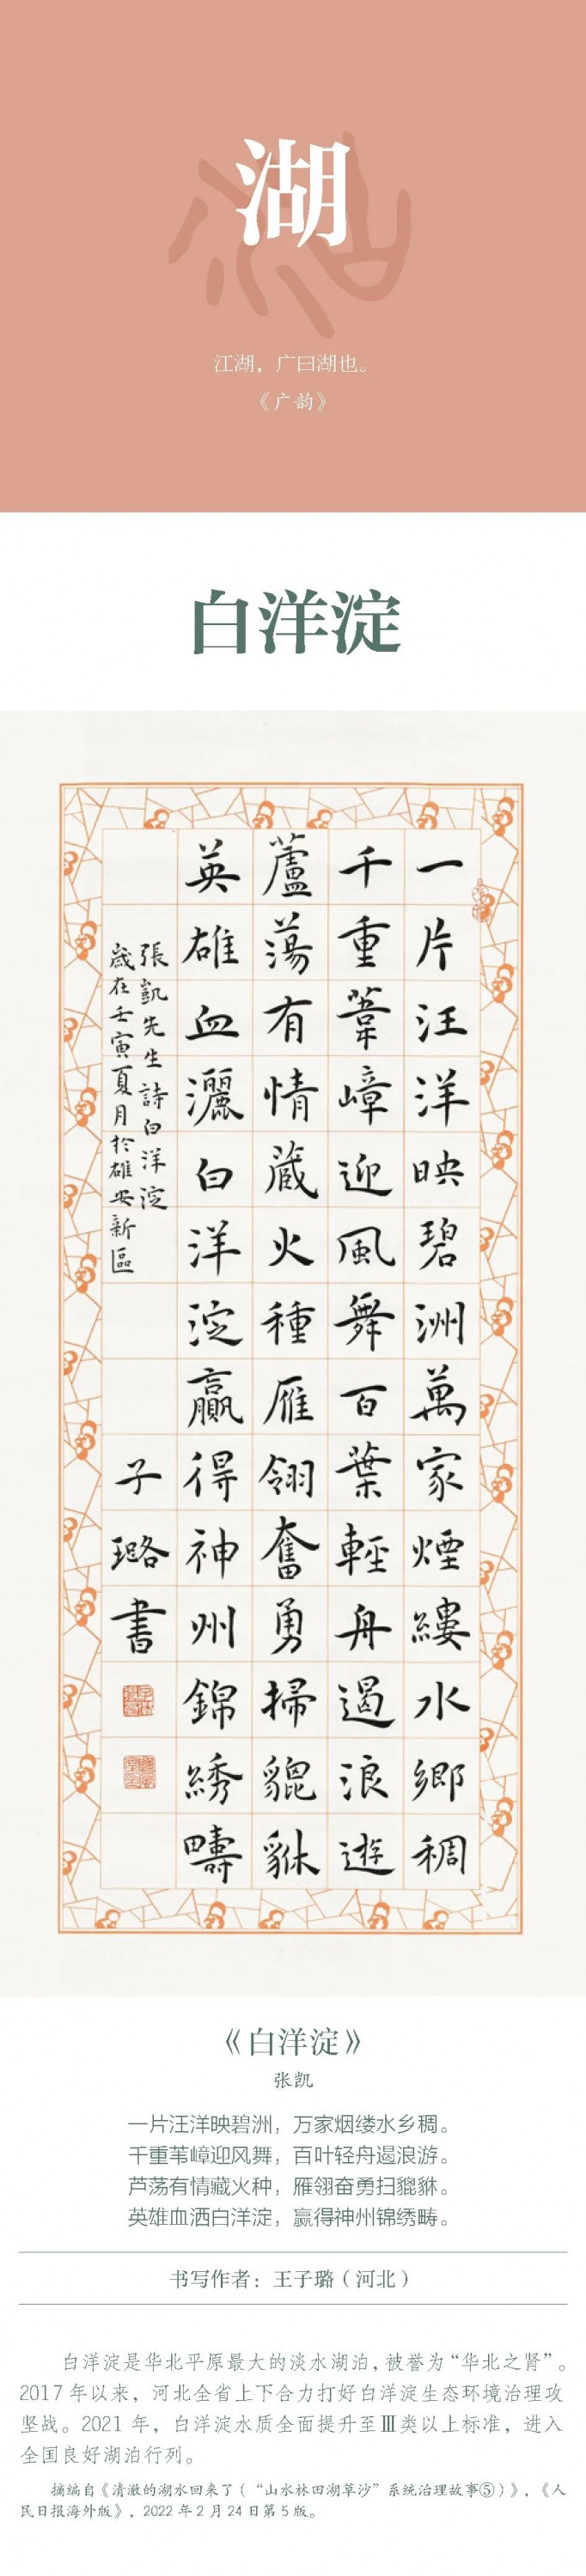 湖
江湖，广曰湖也。
《广韵》
白洋淀
一片汪洋映碧洲萬家煙縷水鄉稠
千重葦嶂迎風舞百葉輕舟遏浪遊
蘆蕩有情藏火種雁翎奮勇掃貔貅
英雄血灑白洋淀贏得神州錦綉疇
張凱先生詩白洋淀
歲在壬寅夏月於雄安新區
子璐書
《白洋淀》
张凯
一片汪洋映碧洲，万家烟缕水乡稠。
千重苇嶂迎风舞，百叶轻舟遏浪游。
芦荡有情藏火种，雁翎奋勇扫貔貅。
英雄血洒白洋淀，赢得神州锦绣畴。
书写作者：王子璐（河北）
白洋淀是华北平原最大的淡水湖泊，被誉为“华北之肾”。
2017 年以来，河北全省上下合力打好白洋淀生态环境治理攻
坚战。2021 年，白洋淀水质全面提升至Ⅲ类以上标准，进入
全国良好湖泊行列。
摘编自《清澈的湖水回来了（“山水林田湖草沙”系统治理故事⑤）》，《人
民日报海外版》，2022 年 2 月 24 日第 5 版。